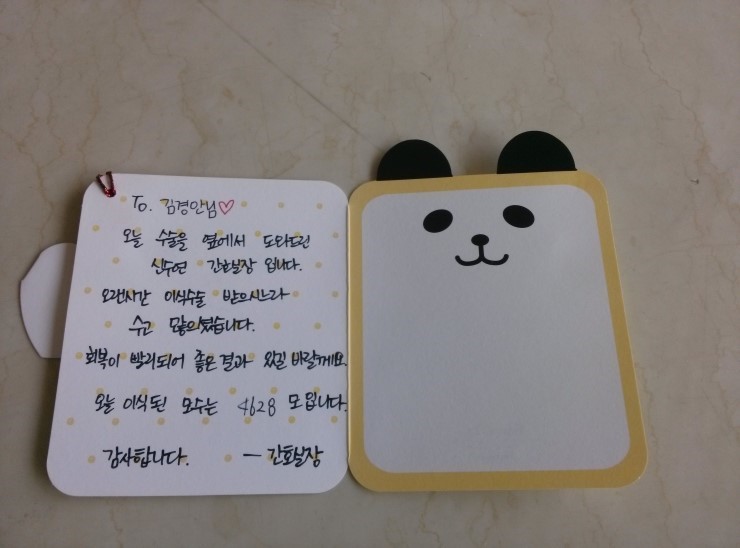 To. 김경안님♡
오늘 수술을 옆에서 도와드린
신수연 간호실장 입니다.
오랜시간 이식수술 받으시느라
수고 많으셨습니다.
회복이 빨리되어 좋은결과 있길 바랄게요.
오늘 이식된 모수는 4628 모입니다.
감사합니다. - 간호실장